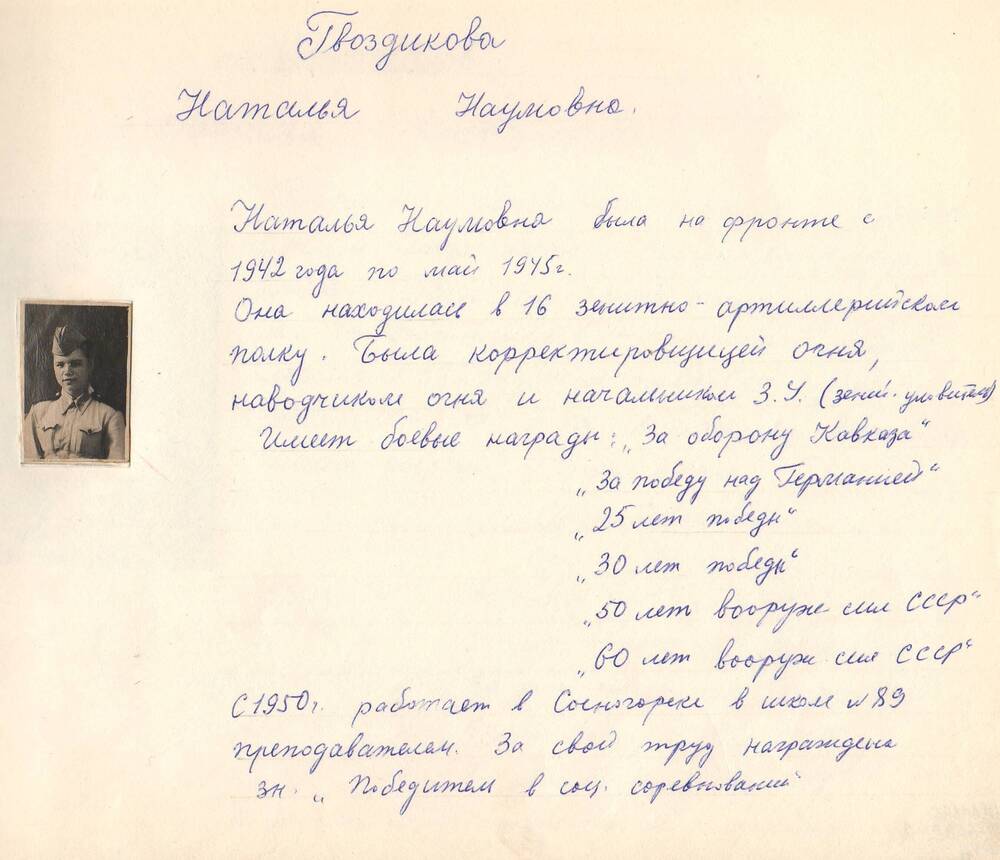 Гвоздикова
Наталья Наумовна.
Наталья Наумовна была на фронте с
1942 года по май 1945г.
Она находилась в 16 зенитно-артиллерийском
полку. Была корректировщицей огня,
наводчиком огня и начальником З.У. (зенит.
Имеет боевые награды: „За оборону Кавказа“
„За победу над Германией“
„25 лет победы“
„30 лет победы“
„50 лет вооруж сил СССР“
„60 лет вооруж сил СССР“
С 1950г. работает в Сосногорске в школе №89
преподавателем. За свой труд награждена
зн. „Победител в соц. соревновании“